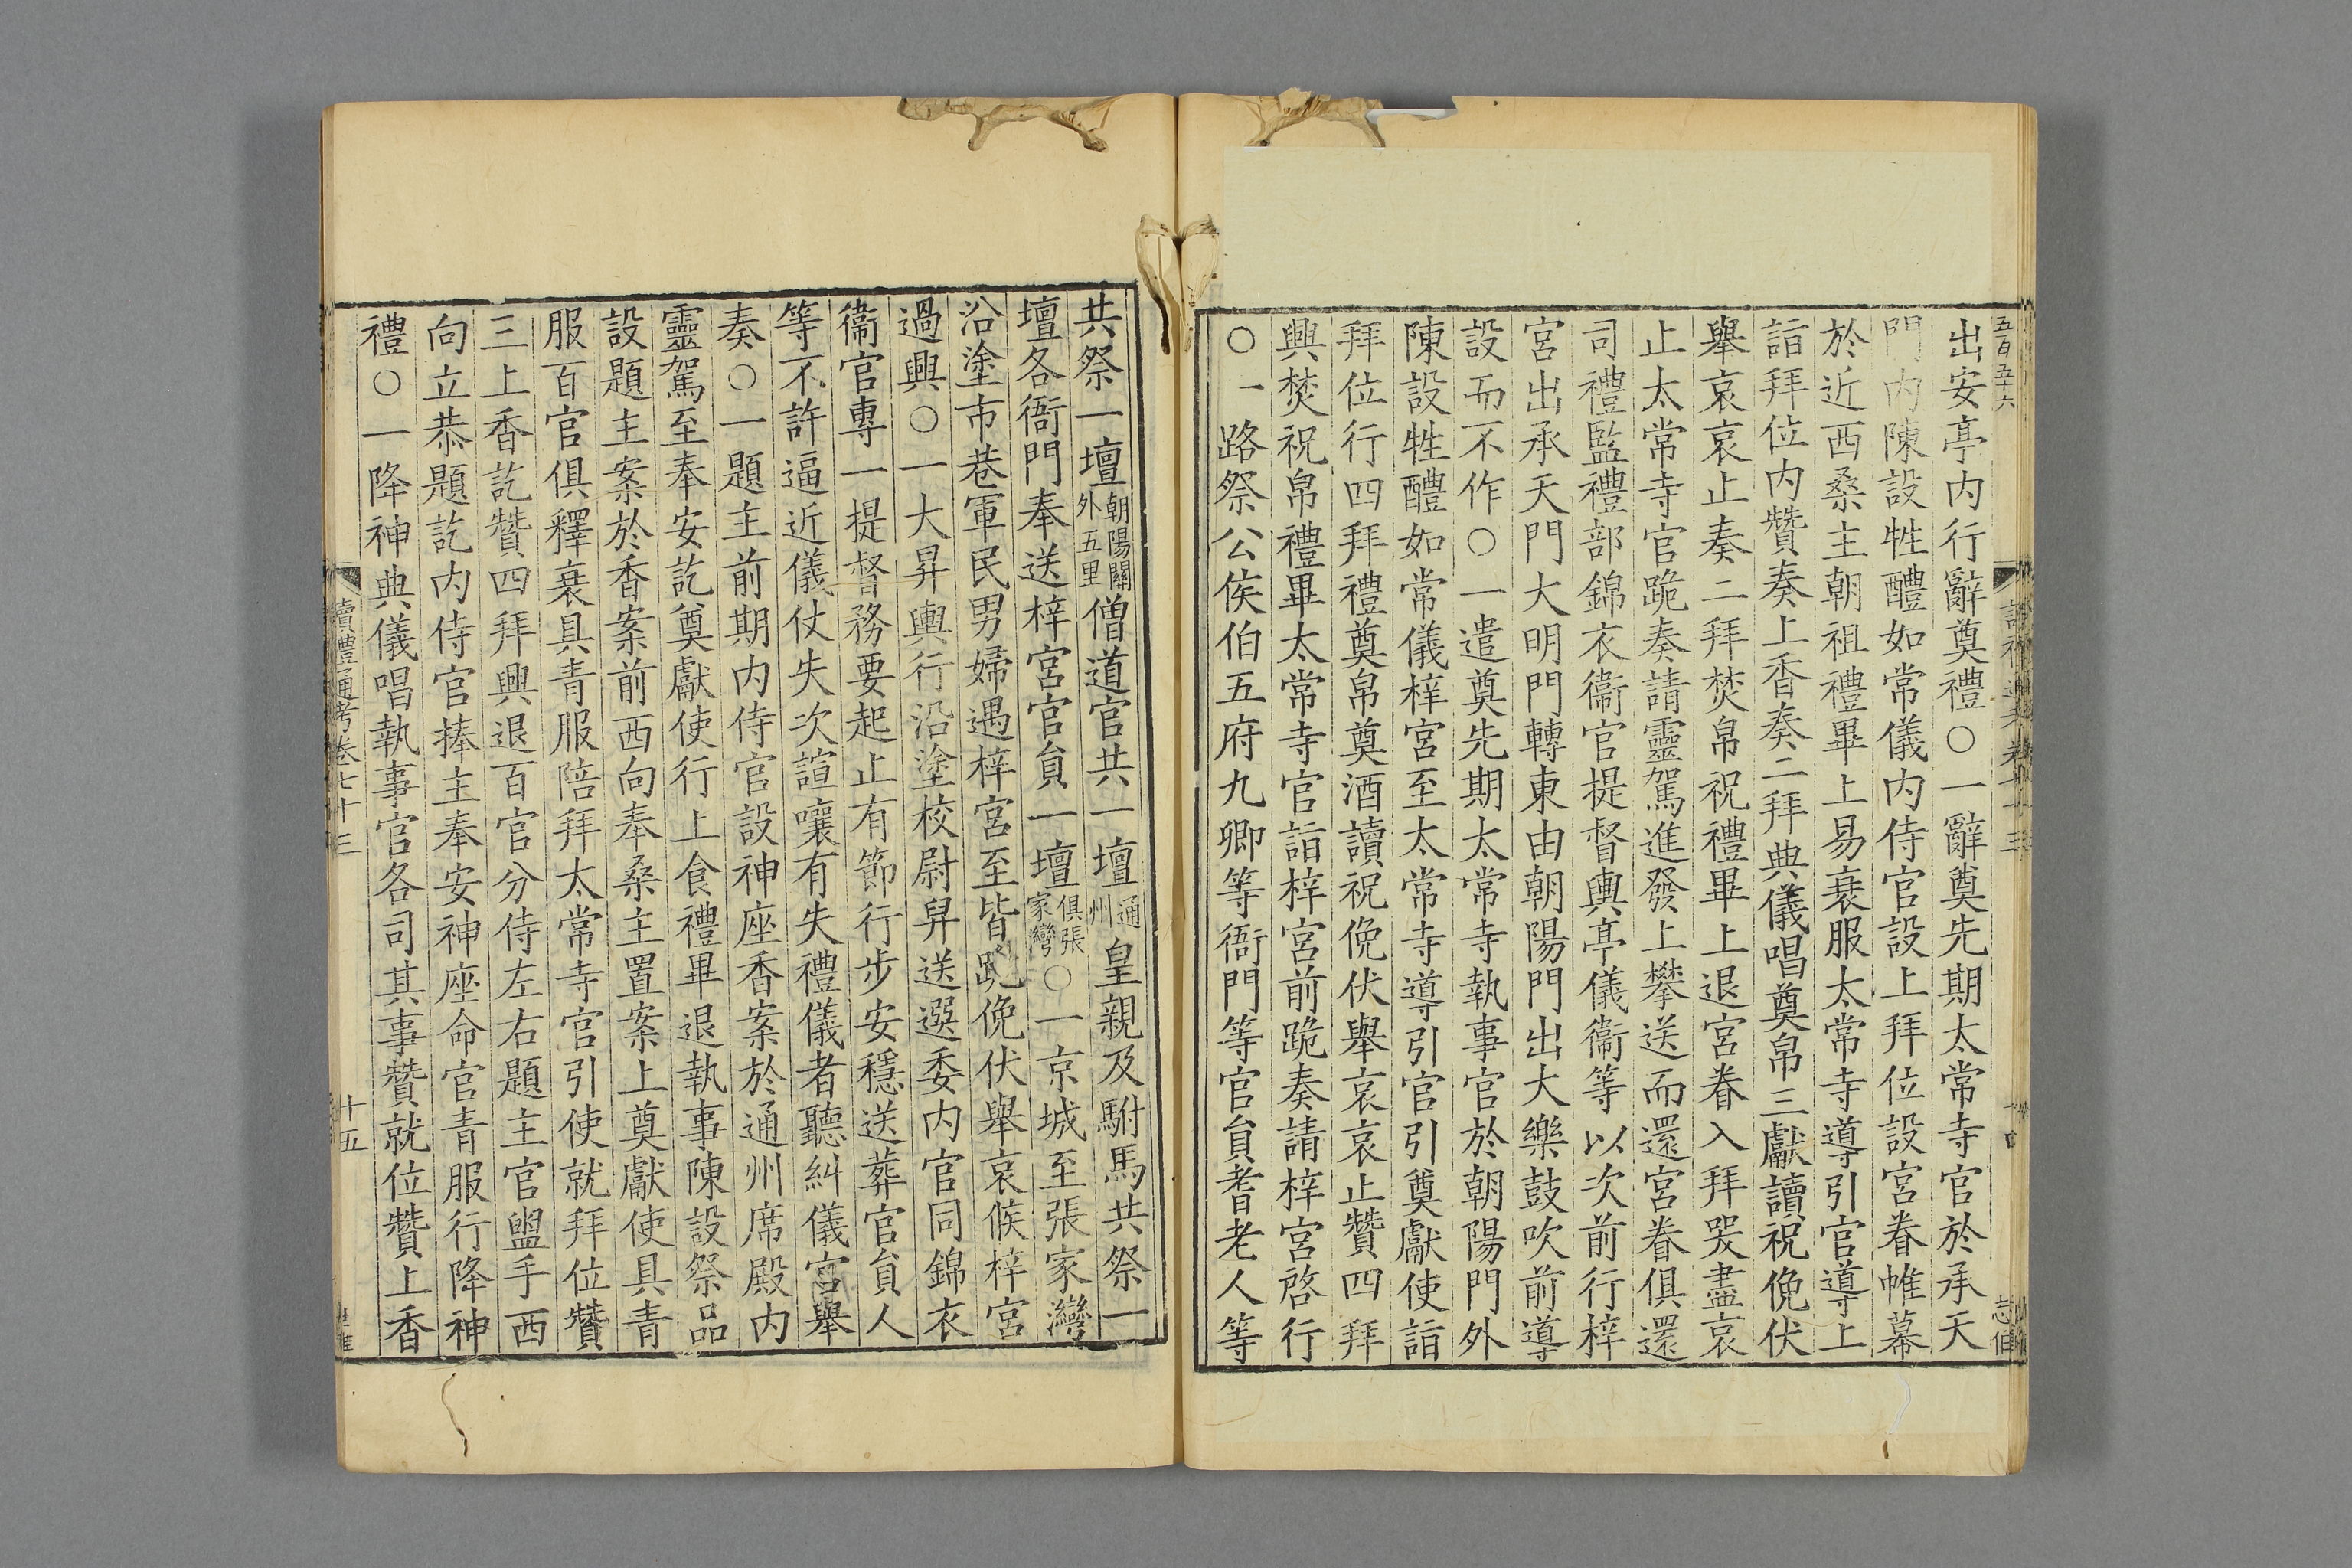 五百五十六
出安亭内行辭奠禮○一辭奠先期太常寺官於承天
門内陳設牲醴如常儀内侍官設上拜位設宮眷帷幕
於近西桑主朝祖禮畢上易衰服太常寺導引官導上
詣拜位内贊奏上香奏二拜典儀唱奠帛三獻讀祝俛伏
舉哀哀止奏二拜焚帛祝禮畢上退宮眷入拜哭盡哀
止太常寺官跪奏請靈駕進發上攀送而還宮眷俱還
司禮監禮部錦衣衞官提督輿亭儀衞等以次前行梓
宮出承天門大明門轉東由朝陽門出大樂鼓吹前導
設而不作○一遣奠先期太常寺執事官於朝陽門外
陳設牲醴如常儀梓宮至太常寺導引官引奠獻使詣
拜位行四拜禮奠帛奠酒讀祝俛伏舉哀哀止贊四拜
興焚祝帛禮畢太常寺官詣梓宮前跪奏請梓宮啓行
○一路祭公侯伯五府九卿等衙門等官員耆老人等
共祭一壇朝陽關外五里僧道官共一壇通州皇親及駙馬共祭一
壇各衙門奉送梓宮官員一壇俱張家灣○一京城至張家灣
沿塗市巷軍民男婦遇梓宮至皆跪俛伏舉哀候梓宮
過興○一大昇輿行沿塗校尉舁送選委内官同錦衣
衞官專一提督務要起止有節行步安穩送葬官員人
等不許逼近儀仗失次諠嚷有失禮儀者聽糾儀官舉
奏○一題主前期内侍官設神座香案於通州席殿内
靈駕至奉安訖奠獻使行上食禮畢退執事陳設祭品
設題主案於香案前西向奉桑主置案上奠獻使具青
服百官俱釋衰具青服陪拜太常寺官引使就拜位贊
三上香訖贊四拜興退百官分侍左右題主官盥手西
向立恭題訖内侍官捧主奉安神座命官青服行降神
禮○一降神典儀唱執事官各司其事贊就位贊上香
續禮通考卷七十三
十五